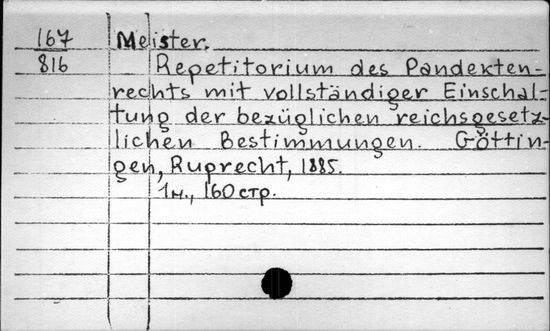 167 Meister.
816 Repetitorium des Pandekten-
rechts mit vollständiger Einschal-
tung der bezüglichen reichsgesetz-
lichen Bestimmungen. Götting-
gen, Ruprecht, 1885.
1н., 160 стр.